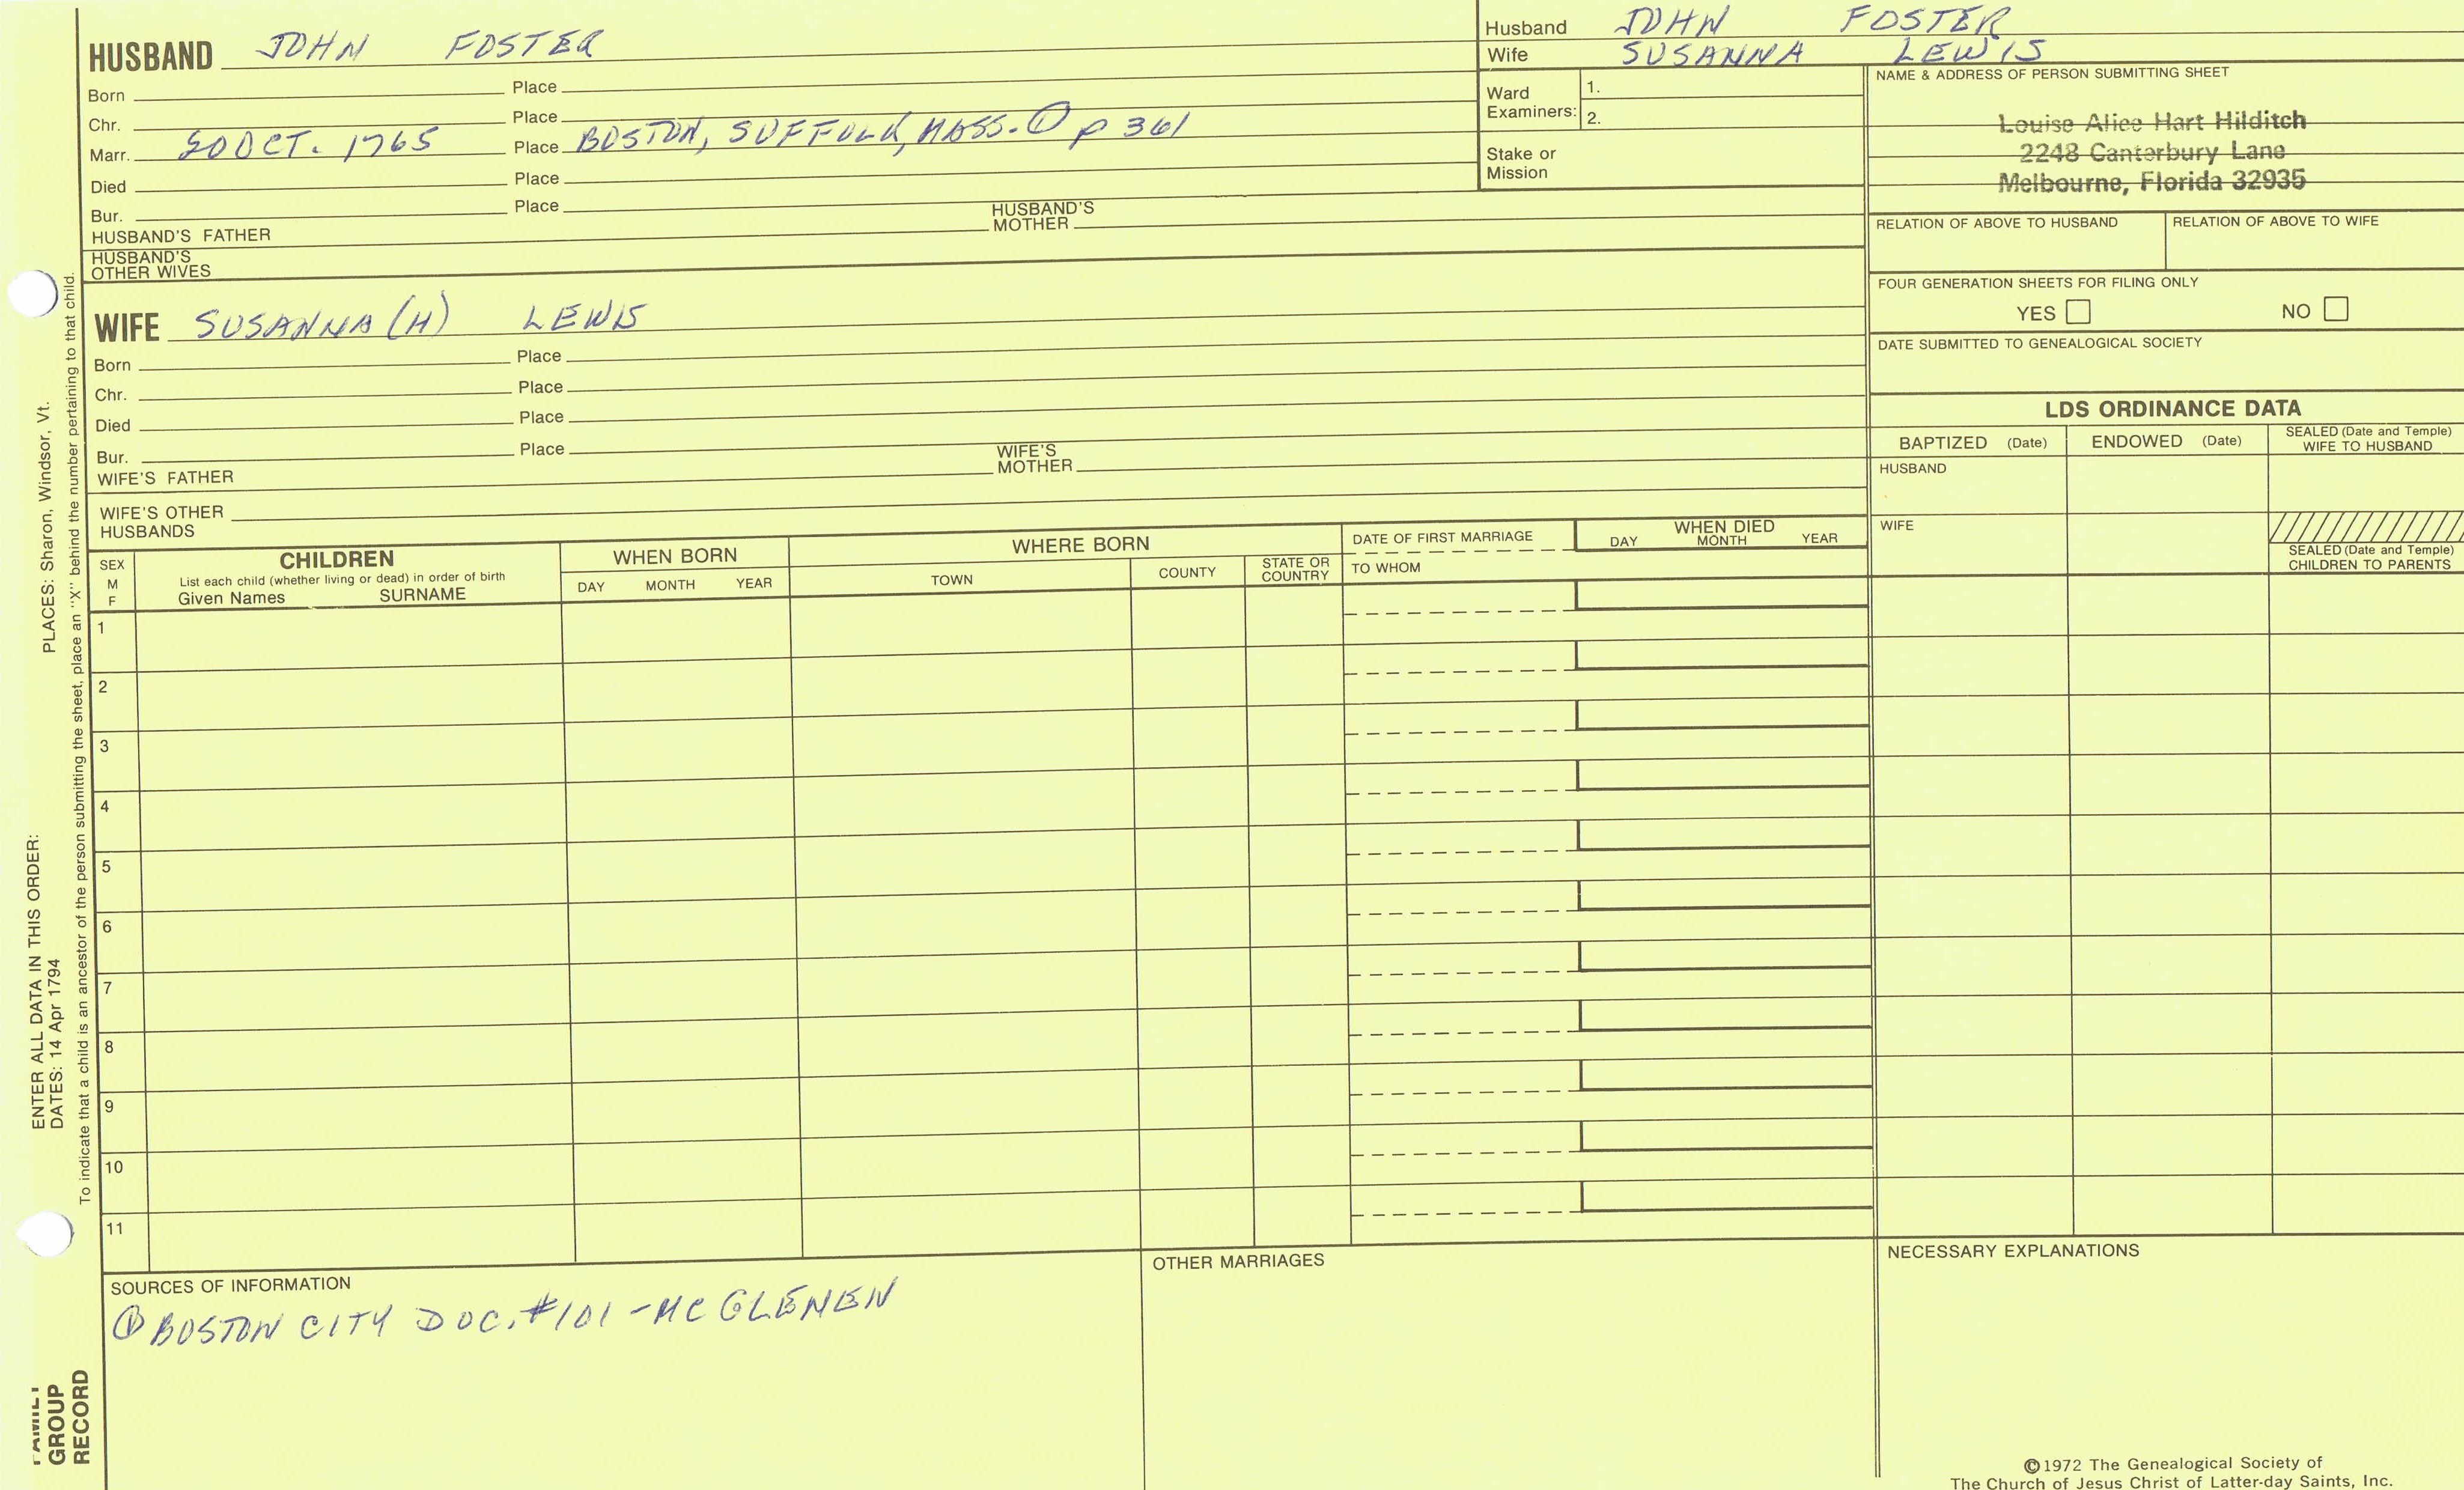 HUSBAND JOHN FOSTER
Born Place
Chr. Place
Marr. 20 OCT. 1765 Place BOSTON, SUFFOLK, MASS. ① p 361
Died Place
Bur. Place
HUSBAND'S FATHER HUSBAND'S MOTHER
HUSBAND'S OTHER WIVES
WIFE SUSANNA (H) LEWIS
Born Place
Chr. Place
Died Place
Bur. Place
WIFE'S FATHER WIFE'S MOTHER
WIFE'S OTHER HUSBANDS
Husband JOHN FOSTER
Wife SUSANNA LEWIS
Ward Examiners: 1.
2.
Stake or Mission
NAME & ADDRESS OF PERSON SUBMITTING SHEET
Louise Alice Hart Hilditch
2248 Canterbury Lane
Melbourne, Florida 32935
RELATION OF ABOVE TO HUSBAND RELATION OF ABOVE TO WIFE
FOUR GENERATION SHEETS FOR FILING ONLY
YES NO
DATE SUBMITTED TO GENEALOGICAL SOCIETY
LDS ORDINANCE DATA
BAPTIZED (Date) ENDOWED (Date) SEALED (Date and Temple) WIFE TO HUSBAND
HUSBAND
WIFE
SEALED (Date and Temple) CHILDREN TO PARENTS
SEX M F
CHILDREN
List each child (whether living or dead) in order of birth
Given Names SURNAME
WHEN BORN
DAY MONTH YEAR
WHERE BORN
TOWN COUNTY STATE OR COUNTRY
DATE OF FIRST MARRIAGE
TO WHOM
WHEN DIED
DAY MONTH YEAR
1
2
3
4
5
6
7
8
9
10
11
SOURCES OF INFORMATION
① BOSTON CITY DOC. #101 - MC GLENEN
OTHER MARRIAGES
NECESSARY EXPLANATIONS
©1972 The Genealogical Society of
The Church of Jesus Christ of Latter-day Saints, Inc.
FAMILY GROUP RECORD
ENTER ALL DATA IN THIS ORDER:
DATES: 14 Apr 1794 PLACES: Sharon, Windsor, Vt.
To indicate that a child is an ancestor of the person submitting the sheet, place an "X" behind the number pertaining to that child.